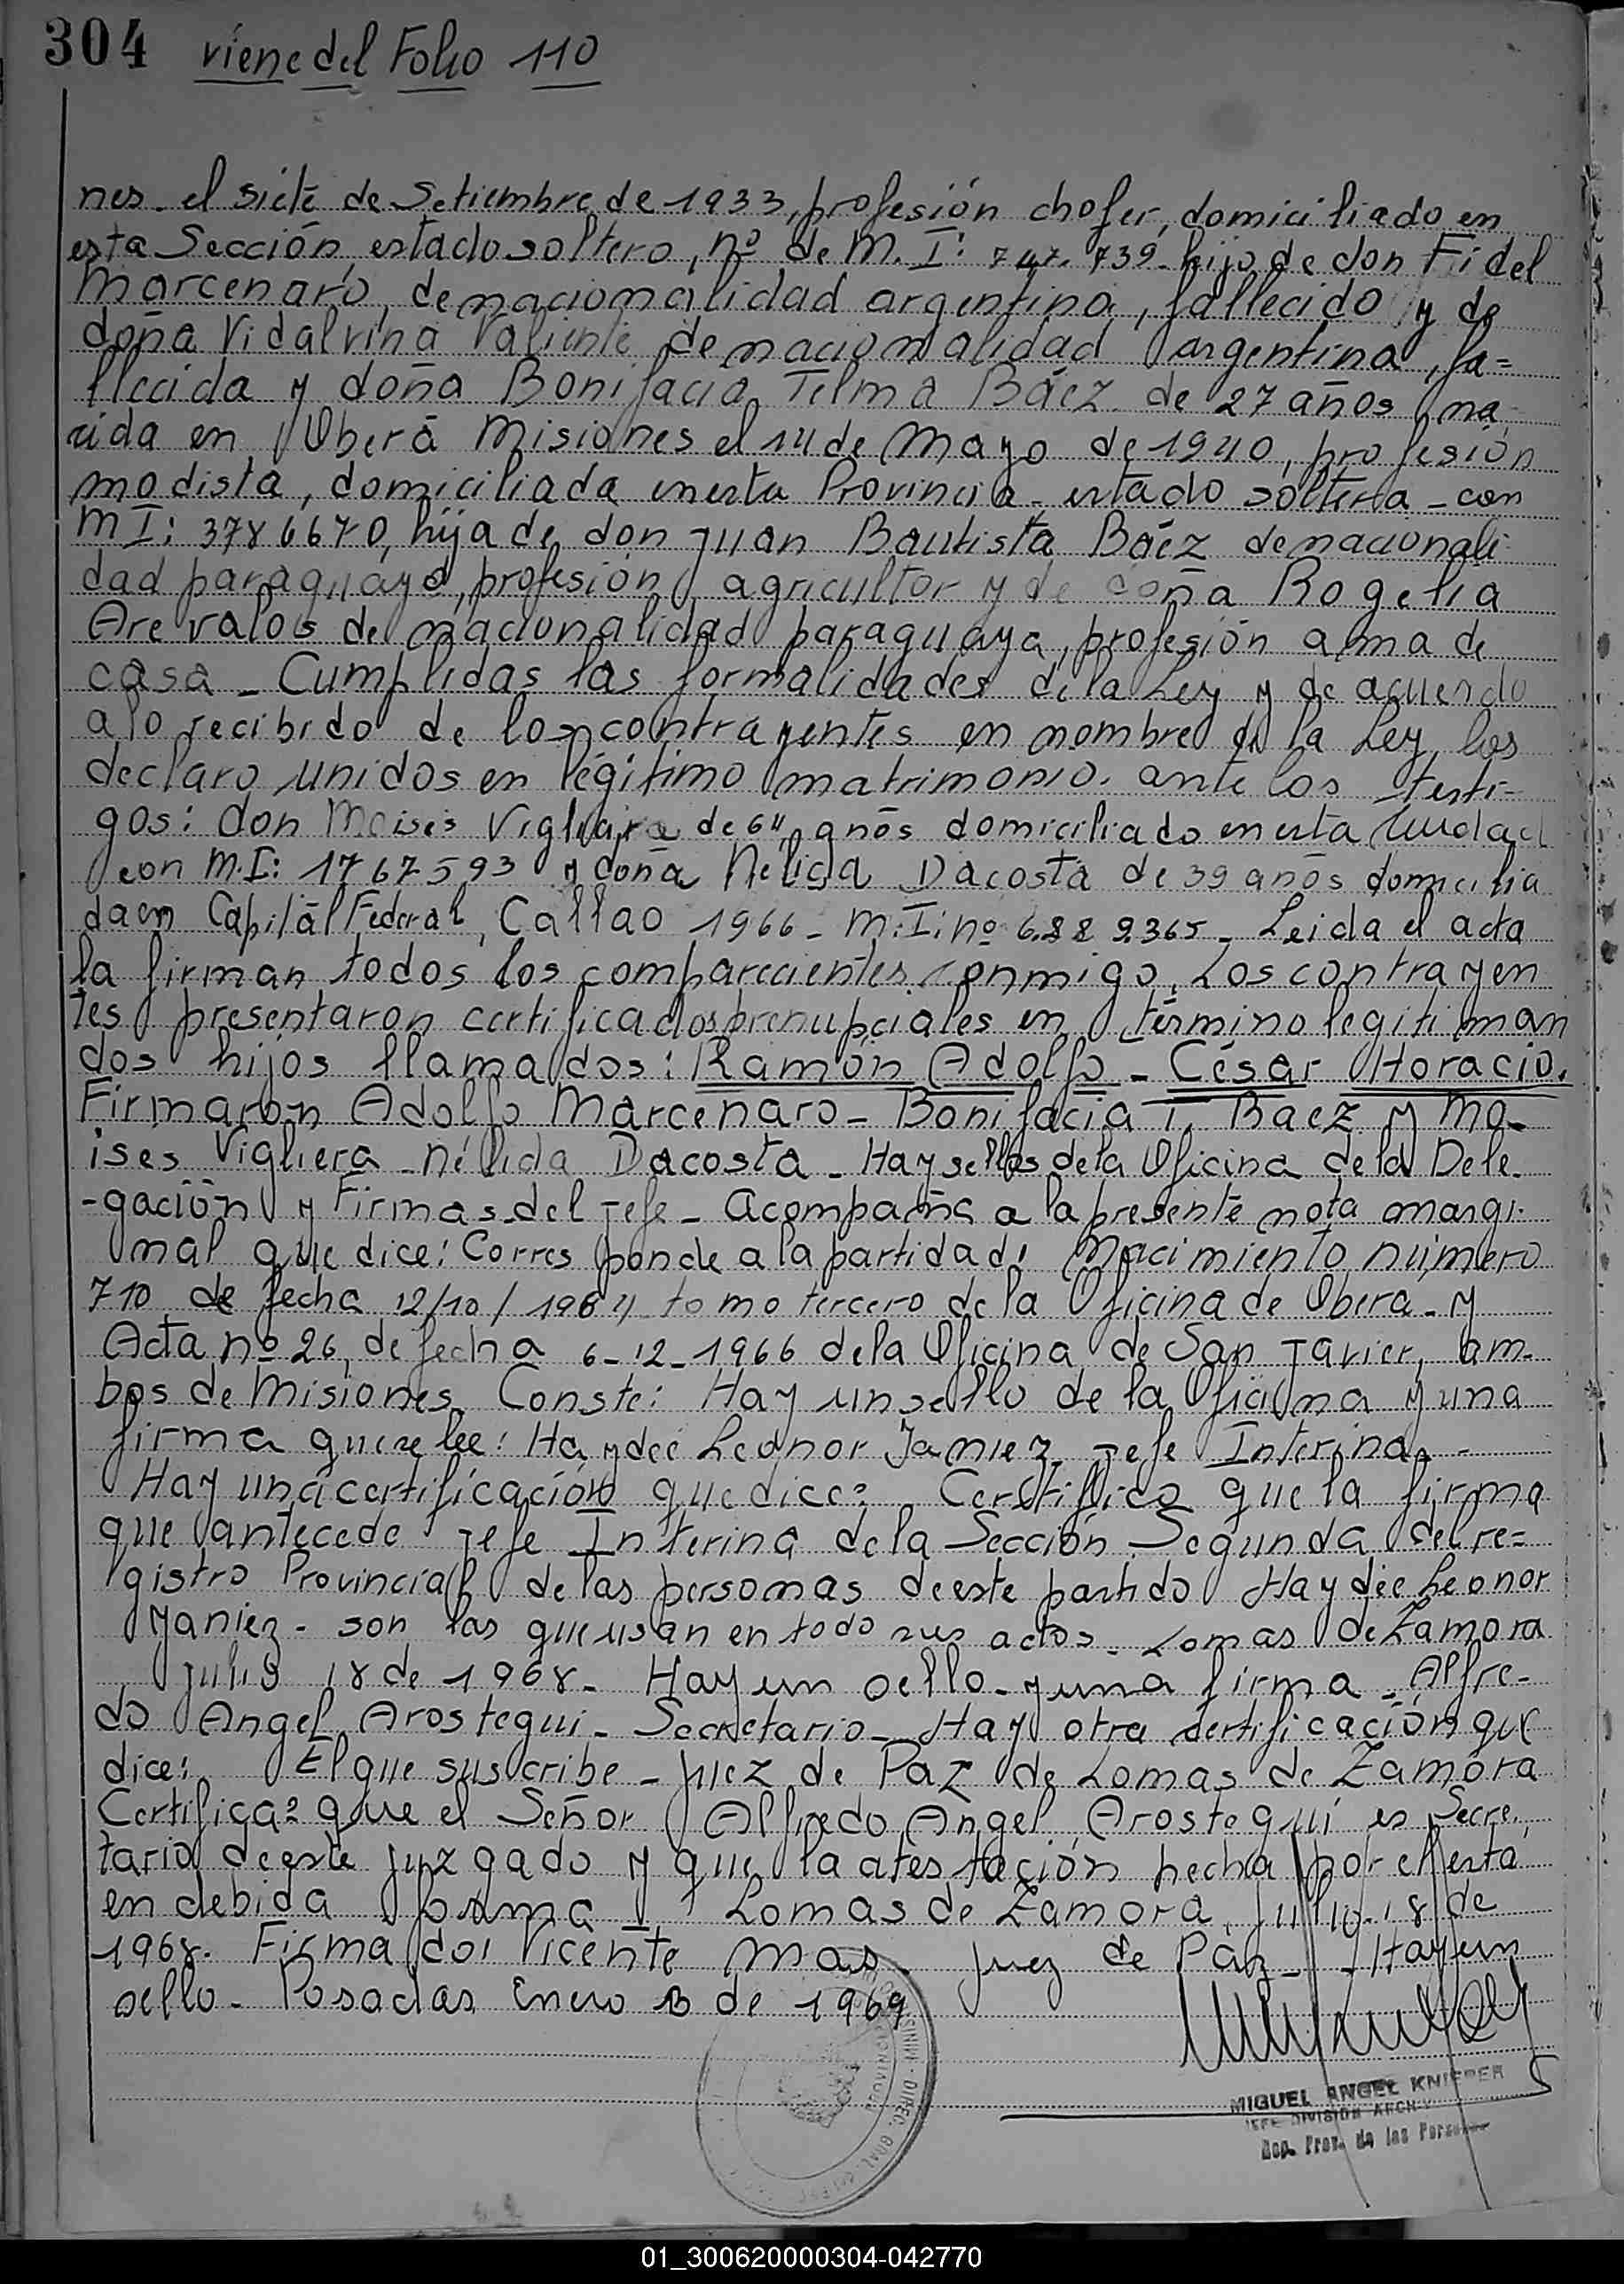 304 viene del Folio 110
nes. el siete de Setiembre de 1933, profesión chofer, domiciliado en
esta Sección, estado soltero, nº de M. I: 747. 739 - hijo de don Fidel
Marcenaro, de nacionalidad argentina, fallecido y de
doña Vidalvina Valiente de nacionalidad argentina, fa=
llecida y doña Bonifacia Telma Báez de 27 años, na
cida en Oberá Misiones el 14 de Mayo de 1940, profesión
modista, domiciliada en esta Provincia - estado soltera - con
M I: 3786670, hija de don Juan Bautista Báez de nacionali
dad paraguayo, profesión agricultor y de doña Rogelia
Arevalos de nacionalidad paraguaya, profesión ama de
casa - Cumplidas las formalidades de la Ley y de acuerdo
a lo recibido de los contrayentes en nombre de la Ley, los
declaro unidos en legitimo matrimonio. ante los testi-
gos: don Moises de 64 años domiciliado en esta Ciudad
con M.I: 1767593 y doña Nelida Dacosta de 39 años domicilia
da en Capitál Federal, Callao 1966 - M.I: nº 6.889.365 - Leida el acta
la firman todos los comparecientes conmigo, Los contrayen
tes presentaron certificados prenupciales en término legitiman
dos hijos llamados: Ramón Adolfo - César Horacio.
Firmaron Adolfo Marcenaro - Bonifacia T. Baez y Mo-
ises Vigliera - Nélida Dacosta - Hay sellos de la Oficina de la Dele-
-gación y Firmas del Jefe - Acompaña a la presente nota margi-
nal que dice: Corresponde a la partida de Nacimiento número
710 de fecha 12/10/1964 tomo tercero de la Oficina de Obera - y
Acta nº 26, de fecha 6-12-1966 de la Oficina de San Javier, am-
bos de Misiones. Conste: Hay un sello de la Oficina y una
firma que se lee: Haydeé Leonor Janiez Jefe Interina -
Hay una certificación que dice: Certifico que la firma
que antecede Jefe Interina de la Sección Segunda del re=
gistro Provincial de las personas de este partido Haydée Leonor
Yaniez - son las que usan en todo sus actos - Lomas de Zamora
Julio 18 de 1968 - Hay un sello - y una firma - Alfre-
do Angel Arostegui - Secretario - Hay otra certificación que
dice: El que suscribe - Juez de Paz de Lomas de Zamora
Certifica: que el Señor Alfredo Angel Arostegui es Secre-
tario de este juzgado y que la atestación hecha por el esta
en debida forma - Lomas de Zamora, Julio 18 de
1968. Firmado: Vicente Mas - Juez de Paz - Hay un
sello - Posadas Enero 13 de 1969
MIGUEL ANGEL KNIEPER
JEFE DIVISION ARCH.
Reg. Prov. de las Personas
01_300620000304-042770